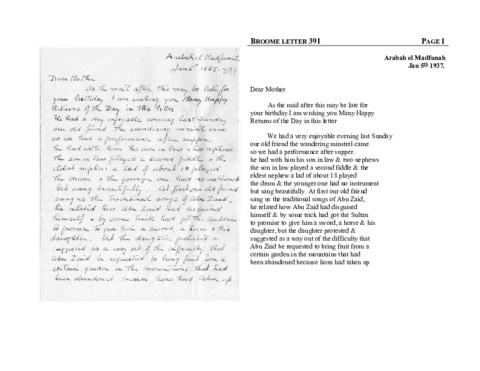 Arabah el Madfunah.
Jan 5th 1937. 391
Dear Mother
As the mail after this may be late for
your birthday I am wishing you Many Happy
Returns of the Day in this letter
We had a very enjoyable evening last Sunday
our old friend the wandering minstrel came
so we had a performance after supper.
he had with him his son in law & two nephews
the son in law played a second fiddle & the
eldest nephew a lad of about 18 played
the drum & the younger one had no instrument
but sang beautifully. At first our old friend
sang us the traditional songs of Abu Zaid,
he related how Abu Zaid had disguised
himself & by some trick had got the Sultan
to promise to give him a sword, a horse & his
daughter, but the daughter protested &
suggested as a way out of the difficulty that
Abu Zaid be requested to bring fruit from a
certain garden in the mountains that had
been abandoned because lions had taken up
BROOME LETTER 391 PAGE 1
Arabah el Madfunah
Jan 5th 1937.
Dear Mother
As the mail after this may be late for
your birthday I am wishing you Many Happy
Returns of the Day in this letter
We had a very enjoyable evening last Sunday
our old friend the wandering minstrel came
so we had a performance after supper.
he had with him his son in law & two nephews
the son in law played a second fiddle & the
eldest nephew a lad of about 18 played
the drum & the younger one had no instrument
but sang beautifully. At first our old friend
sang us the traditional songs of Abu Zaid,
he related how Abu Zaid had disguised
himself & by some trick had got the Sultan
to promise to give him a sword, a horse & his
daughter, but the daughter protested &
suggested as a way out of the difficulty that
Abu Zaid be requested to bring fruit from a
certain garden in the mountains that had
been abandoned because lions had taken up